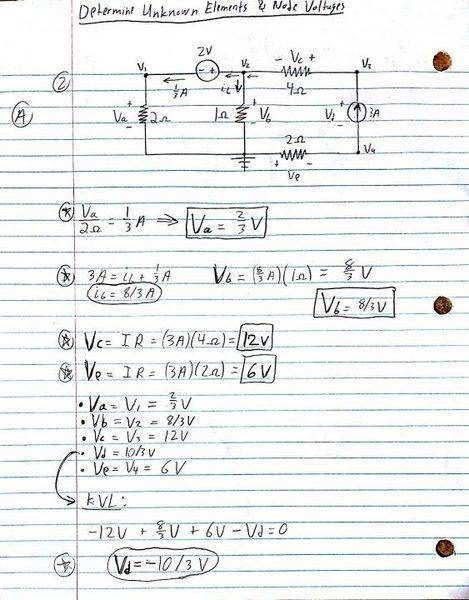 Determine Unknown Elements & Node Voltages
2V
V₁
- +
V₂
- Vc +
V₃
②
1/3 A
i₆
4Ω
Ⓐ
+ Va - 2Ω
1Ω + Vb -
+ Vd - 3A
2Ω
+ Ve -
V₄
Va/2Ω = 1/3 A ⇒ Va = 2/3 V
3A = i₆ + 1/3 A
V6 = (8/3 A)(1Ω) = 8/3 V
i6 = 8/3 A
V6 = 8/3 V
Vc = IR = (3A)(4Ω) = 12V
Ve = IR = (3A)(2Ω) = 6V
• Va = V₁ = 2/3 V
• Vb = V₂ = 8/3 V
• Vc = V₃ = 12V
• Vd = 10/3 V
• Ve = V₄ = 6V
KVL:
-12V + 8/3 V + 6V - Vd = 0
Vd = -10/3 V